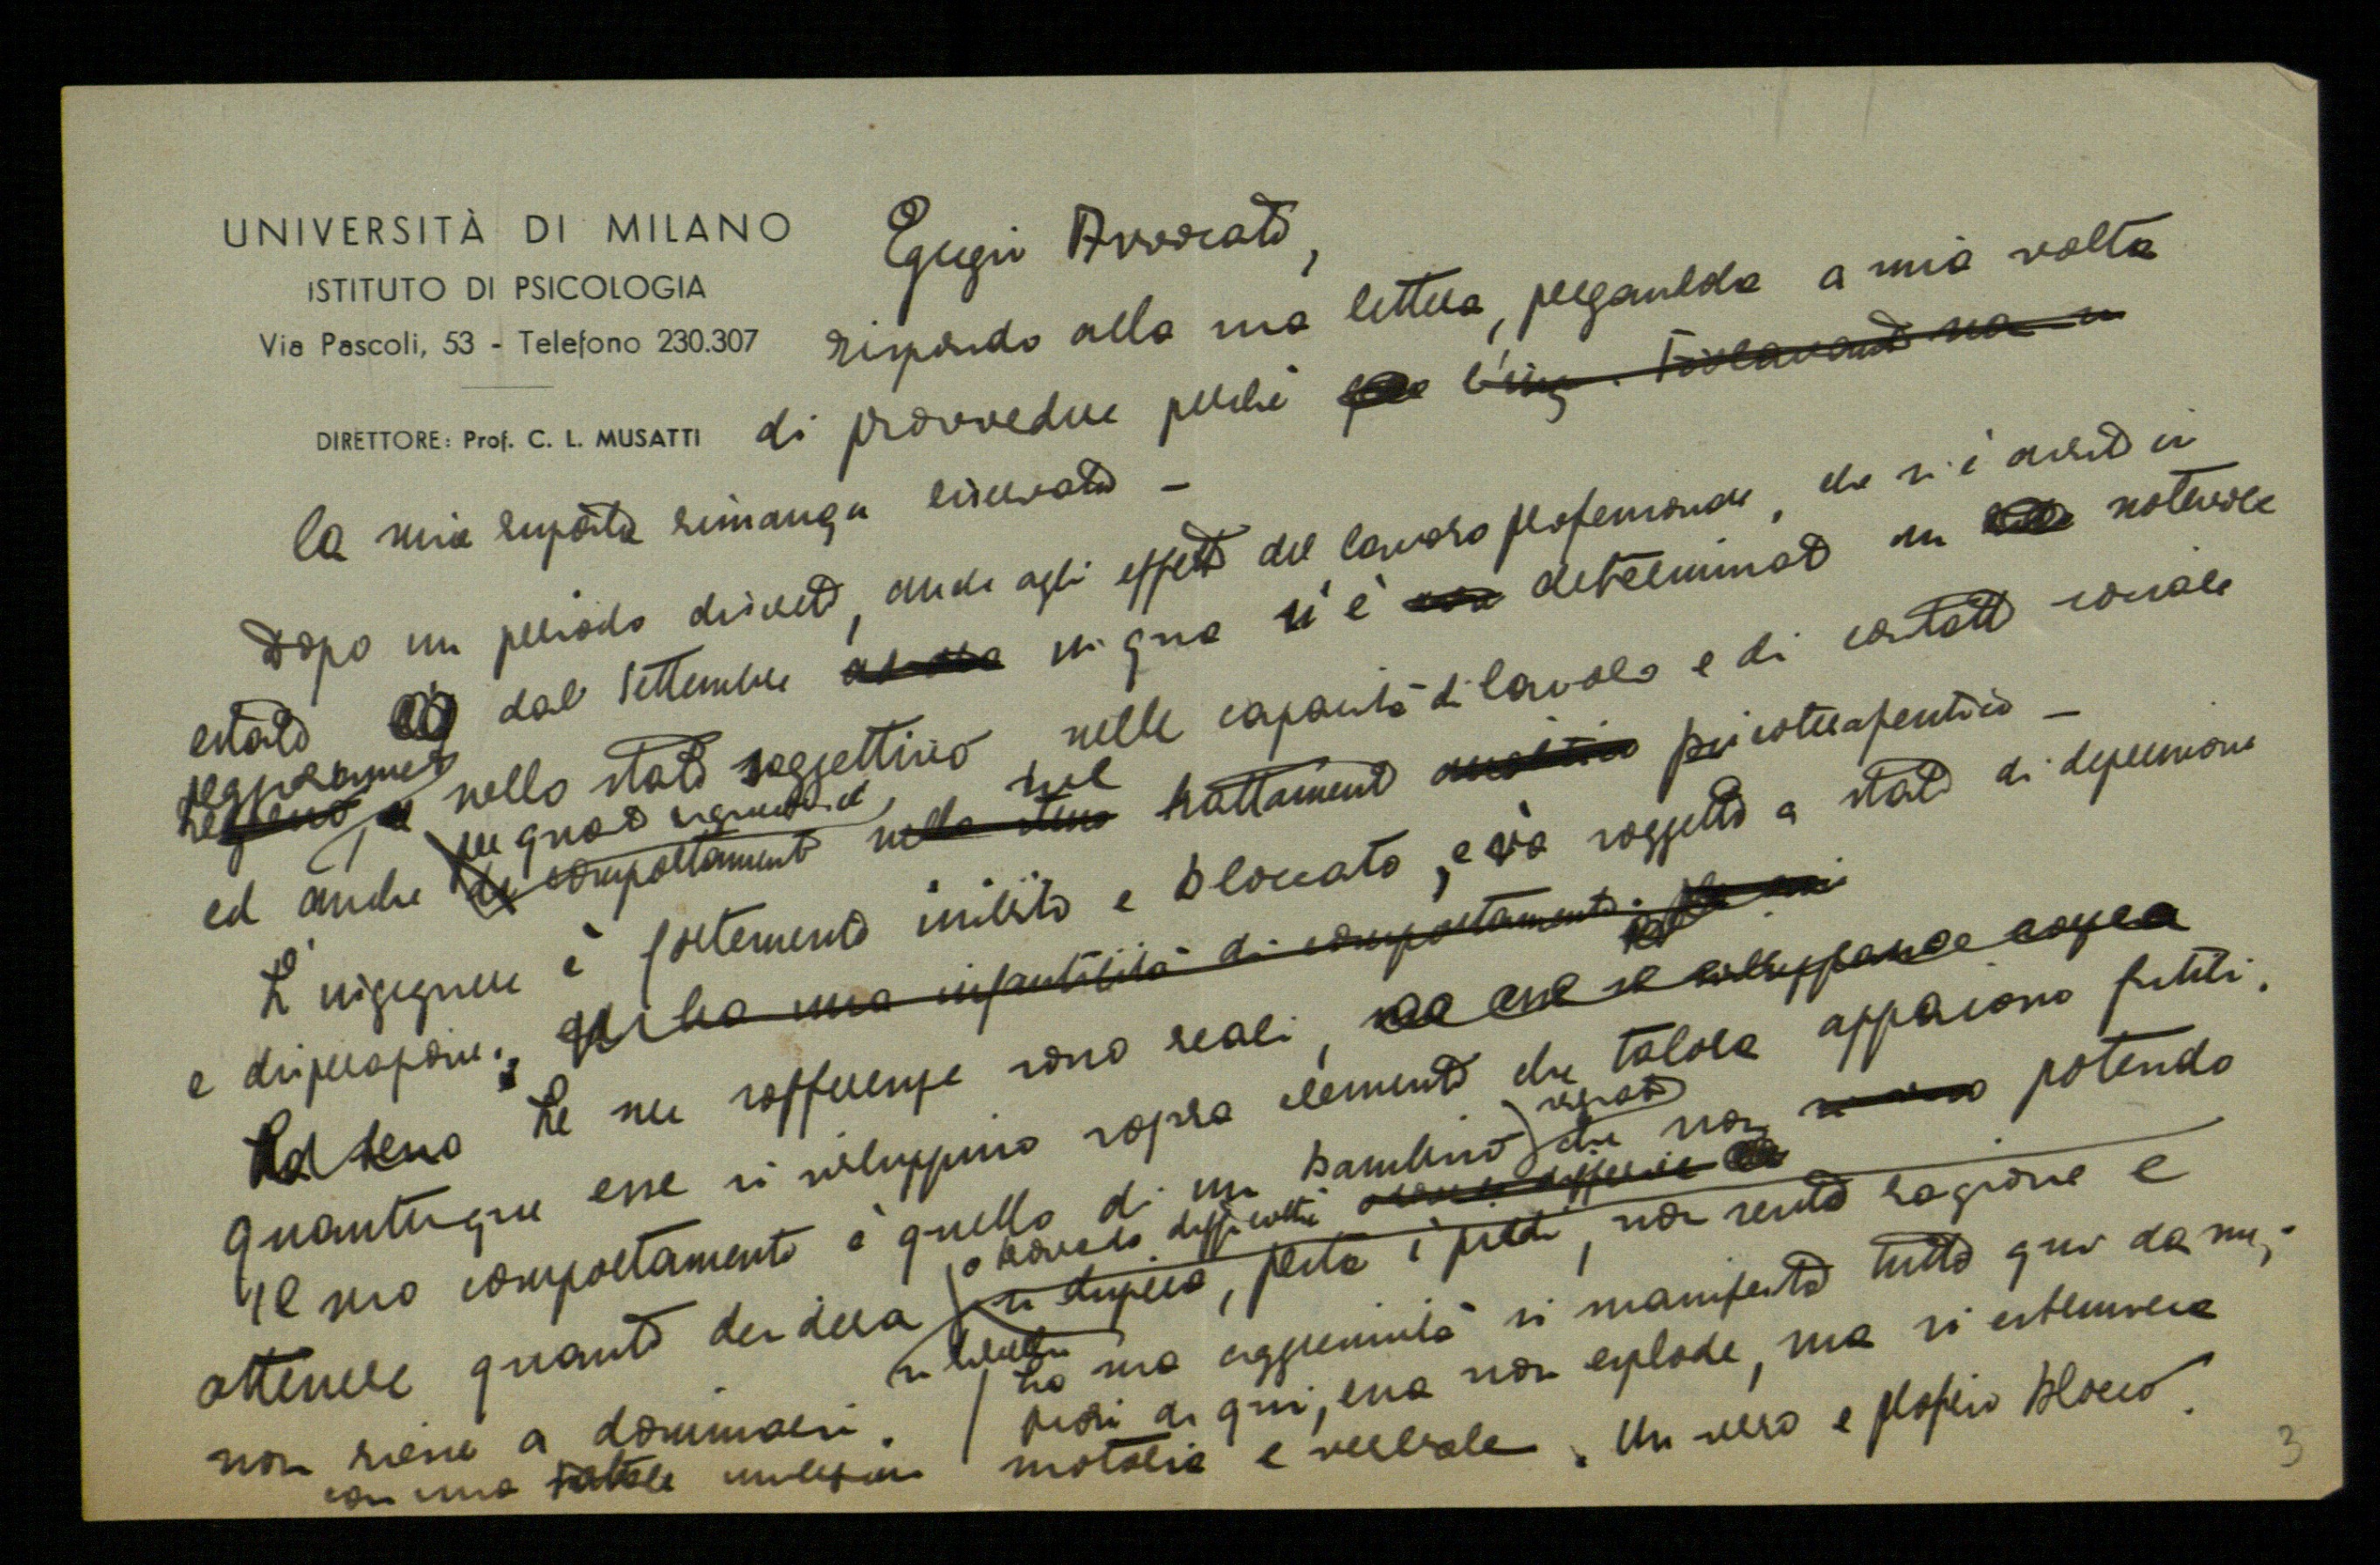 UNIVERSITÀ DI MILANO
ISTITUTO DI PSICOLOGIA
Via Pascoli, 53 - Telefono 230.307
DIRETTORE: Prof. C. L. MUSATTI
Egregio Avvocato,
rispondo alla sua lettera, pregandola a mia volta
di provvedere perché l'ing.
la mia risposta rimanga riservata -
Dopo un periodo discreto, anche agli effetti del lavoro professionale, che si è avuto in
estate dal Settembre in qua si è determinato un notevole
peggioramento nello stato soggettivo nelle capacità di lavoro e di contatto sociale
ed anche per quanto riguarda il comportamento nel trattamento psicoterapeutico -
L'ingegnere è fortemente inibito e bloccato, e va soggetto a stati di depressione
e disperazione. ha una infantilità di comportamento.
Le sue sofferenze sono reali,
quantunque esse si sviluppino sopra elementi che talora appaiono futili.
Il suo comportamento è quello di un bambino viziato che non potendo
ottenere quanto desidera o trovando difficoltà si dispera, pesta i piedi, non sente ragione e
non riesce a dominarsi. si ribella
La sua aggressività si manifesta tutta qui da me;
fuori di qui, essa non esplode, ma si estrinseca
con una totale inibizione motoria e verbale. Un vero e proprio blocco.
3